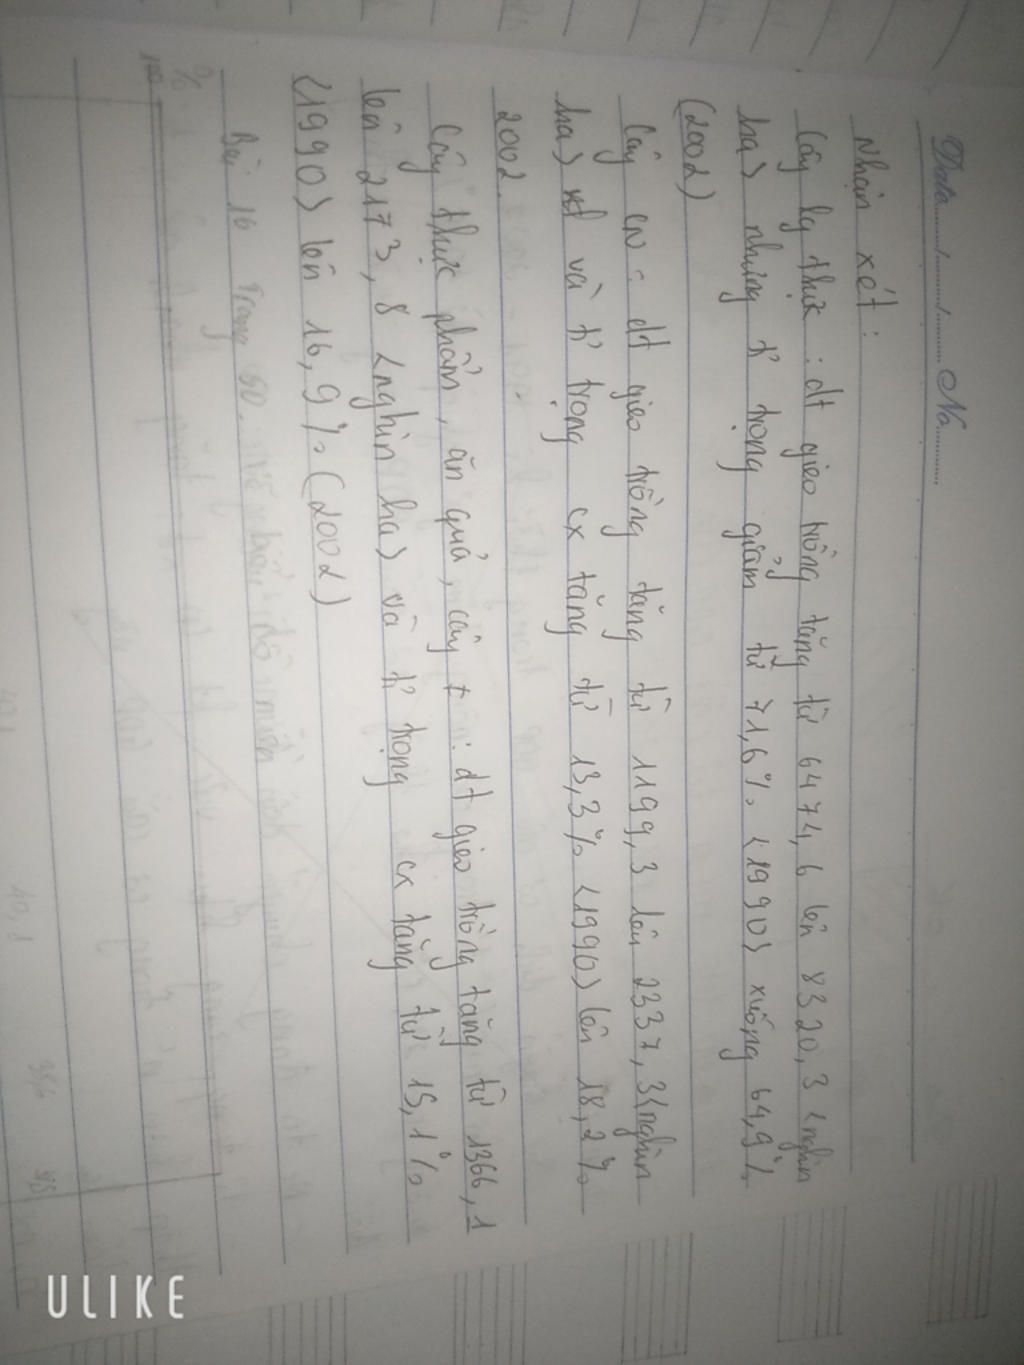 Date ........./........./......... No............
Nhận xét :
Cây lg thực : dt gieo trồng tăng từ 6474,6 lên 8320,3 <nghìn
ha> nhưng tỉ trọng giảm từ 71,6% <1990> xuống 64,9%
(2002)
Cây CN : dt gieo trồng tăng từ 1199,3 lên 2337,3 <nghìn
ha> và tỉ trọng cx tăng từ 13,3% <1990> lên 18,2%
2002.
Cây thực phẩm, ăn quả, cây : dt gieo trồng tăng từ 1366,1
lên 2173,8 <nghìn ha> và tỉ trọng cx tăng từ 15,1%
<1990> lên 16,9% (2002)
Bài 16 Trang 60.
ULIKE